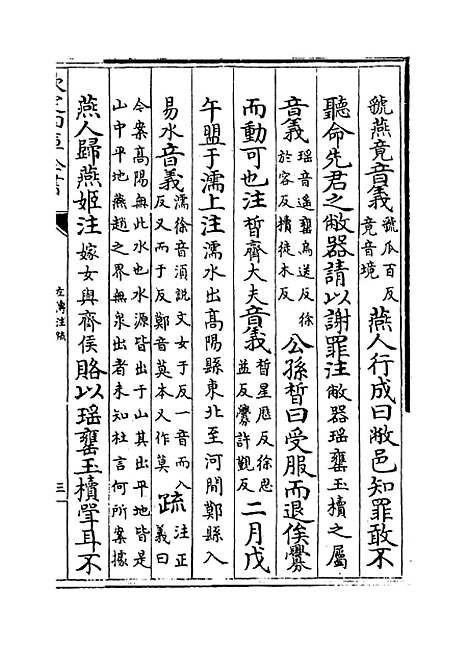 虢燕竟音義虢瓜百反竟音境燕人行成曰敝邑知罪敢不
聽命先君之敝器請以謝罪注敝器瑶罋玉櫝之屬
音義瑶音遥罋烏送反徐於容反櫝徒木反公孫晳曰受服而退俟釁
而動可也注晳齊大夫音義晳星厯反徐思益反釁許覲反二月戊
午盟于濡上注濡水出高陽縣東北至河間鄭縣入
易水音義濡徐音須說文女于反一音而八反又而于反鄭音莫本又作莫疏注正義曰
今案高陽無此水也水源皆出于山其出平地皆是
山中平地燕趙之界無泉出者未知杜言何所案據
燕人歸燕姬注嫁女與齊侯賂以瑶罋玉櫝斝耳不
欽定四庫全書
左傳注疏
三